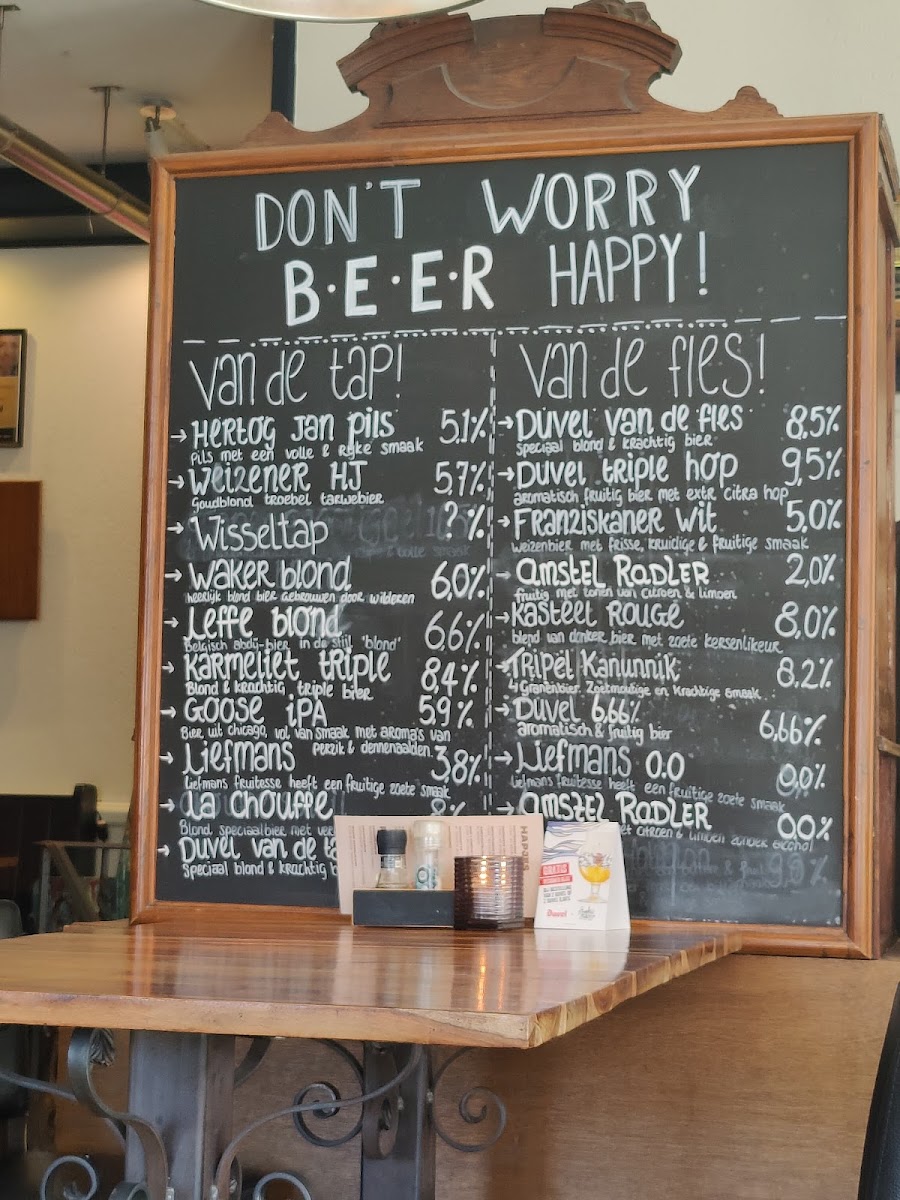 DON'T WORRY
B·E·E·R HAPPY!
Van de tap!
→ Hertog Jan pils 5.1%
Pils met een volle & Rijke smaak
→ Weizener HJ 5,7%
Goudblond troebel tarwebier
→ Wisseltap ?%
→ Waker blond 6,0%
heerlijk blond bier gebrouwen door wilderen
→ Leffe blond 6,6%
Belgisch abdij-bier in de stijl 'blond'
→ Karmeliet triple 8,4%
Blond & krachtig triple bier
→ Goose iPA 5,9%
Bier uit chicago, vol van smaak met aroma's van
perzik & dennenaalden.
→ Liefmans 3,8%
Liefmans fruitesse heeft een fruitige zoete smaak
→ La chouffe
Blond speciaalbier met
→ Duvel van de
Speciaal blond & krachtig
Van de fles!
→ Duvel van de fles 8.5%
Speciaal blond & krachtig bier
→ Duvel triple hop 9,5%
aromatisch fruitig bier met extr citra hop
→ Franziskaner Wit 5,0%
Weizenbier met frisse, kruidige & fruitige smaak
→ Amstel Radler 2,0%
fruitig met tonen van citroen & limoen
→ Kasteel Rouge 8,0%
blend van donker bier met zoete kersenlikeur
→ Tripel Kanunnik 8,2%
4 Granenbier. Zoetmoutige en krachtige smaak
→ Duvel 6,66% 6,66%
aromatisch & fruitig bier
→ Liefmans 0.0 0,0%
Liefmans fruitesse heeft een fruitige zoete smaak
→ Amstel Radler 0.0%
met citroen & limoen zonder alcohol
GRATIS
Duvel